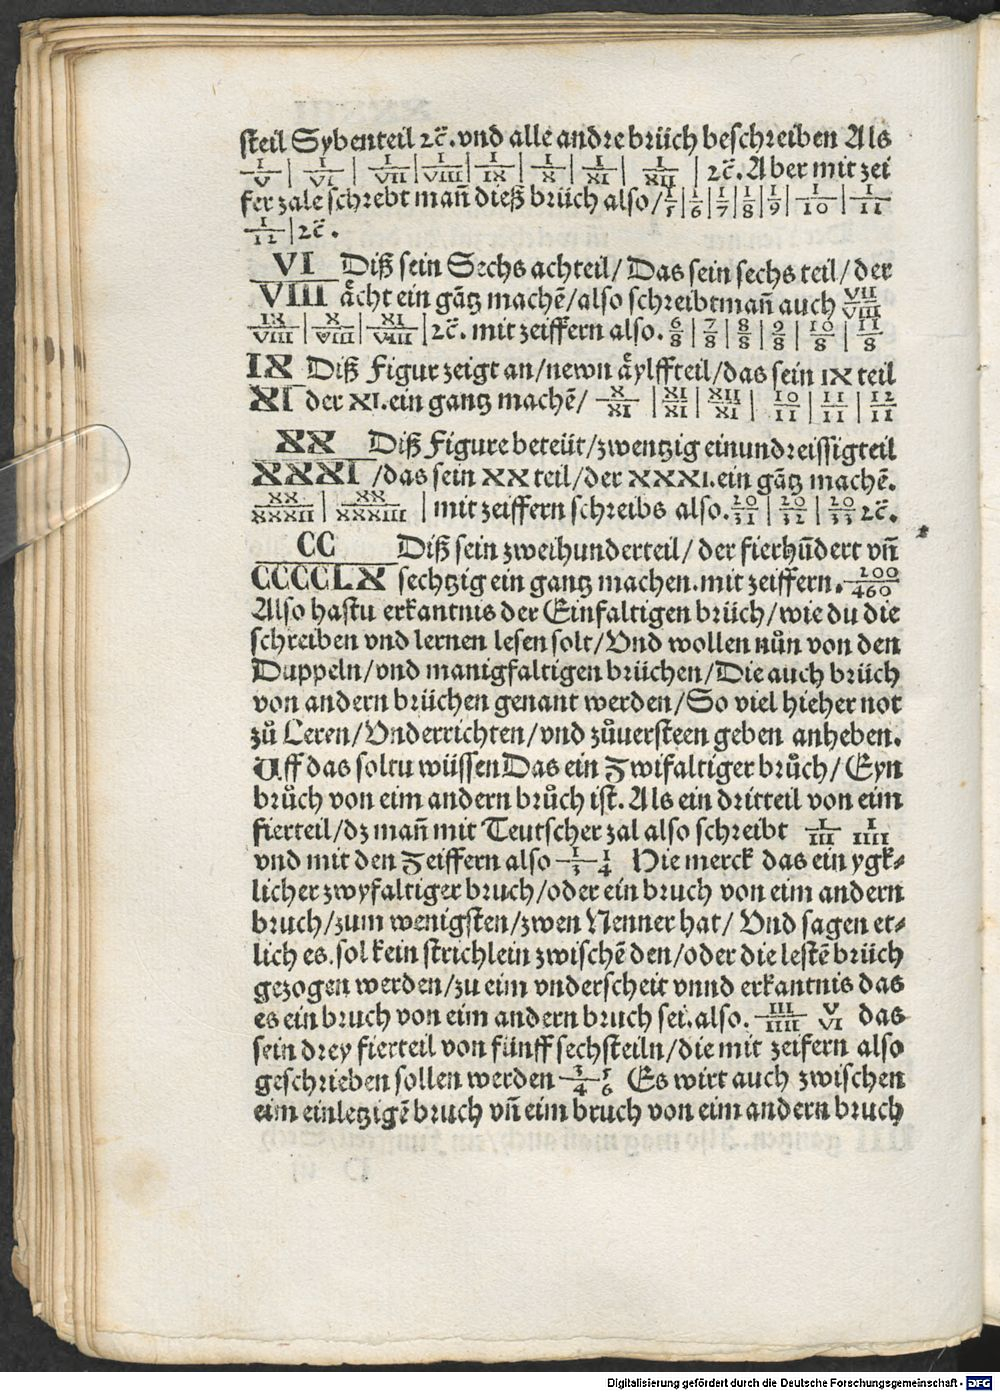 steil Sybenteil ⁊c̃. vnd alle andre brüch beschreiben Als
I/V | I/VI | I/VII | I/VIII | I/IX | I/X | I/XI | I/XII | ⁊c̃. Aber mit zei
fer zale schrebt mañ dieß brüch also / 1/5 | 1/6 | 1/7 | 1/8 | 1/9 | 1/10 | 1/11
1/12 | ⁊c̃.
VI Diß sein Sechs achteil / Das sein sechs teil / der
VIII aͤcht ein gãtz machẽ / also schreibtmañ auch VII/VIII
IX/VIII | X/VIII | XI/VIII | ⁊c̃. mit zeiffern also. 6/8 | 7/8 | 8/8 | 9/8 | 10/8 | 11/8
IX Diß Figur zeigt an / newn aͤylffteil / das sein IX teil
XI der XI. ein gantz machẽ / X/XI | XI/XI | XII/XI | 10/11 | 11/11 | 12/11
XX Diß Figure beteüt / zwentzig einundreissigteil
XXXI / das sein XX teil / der XXXI. ein gãtz machẽ.
XX/XXXII | XX/XXXIII | mit zeiffern schreibs also. 20/31 | 20/32 | 20/33 ⁊c̃.
CC Diß sein zweihunderteil / der fierhũdert vñ
CCCCLX sechtzig ein gantz machen. mit zeiffern. 200/460
Also hastu erkantnis der Einfaltigen brüch / wie du die
schreiben vnd lernen lesen solt / Vnd wollen nůn von den
Duppeln / vnd manigfaltigen brüchen / Die auch brüch
von andern brüchen genant werden / So viel hieher not
zů Leren / Vnderrichten / vnd zůuersteen geben anheben.
Uff das soltu wüssen Das ein Zwifaltiger brůch / Eyn
brůch von eim andern brůch ist. Als ein dritteil von eim
fierteil / dz mañ mit Teutscher zal also schreibt I/III I/IIII
vnd mit den Zeiffern also 1/3 1/4 Hie merck das ein ygk⸗
licher zwyfaltiger bruch / oder ein bruch von eim andern
bruch / zum wenigsten / zwen Nenner hat / Vnd sagen et⸗
lich es. sol kein strichlein zwischẽ den / oder die lestẽ brüch
gezogen werden / zu eim vnderscheit vnnd erkantnis das
es ein bruch von eim andern bruch sei. also. III/IIII V VI das
sein drey fierteil von fünff sechsteiln / die mit zeifern also
geschrieben sollen werden 3/4 5 6 Es wirt auch zwischen
eim einletzigẽ bruch vñ eim bruch von eim andern bruch
Digitalisierung gefördert durch die Deutsche Forschungsgemeinschaft - DFG